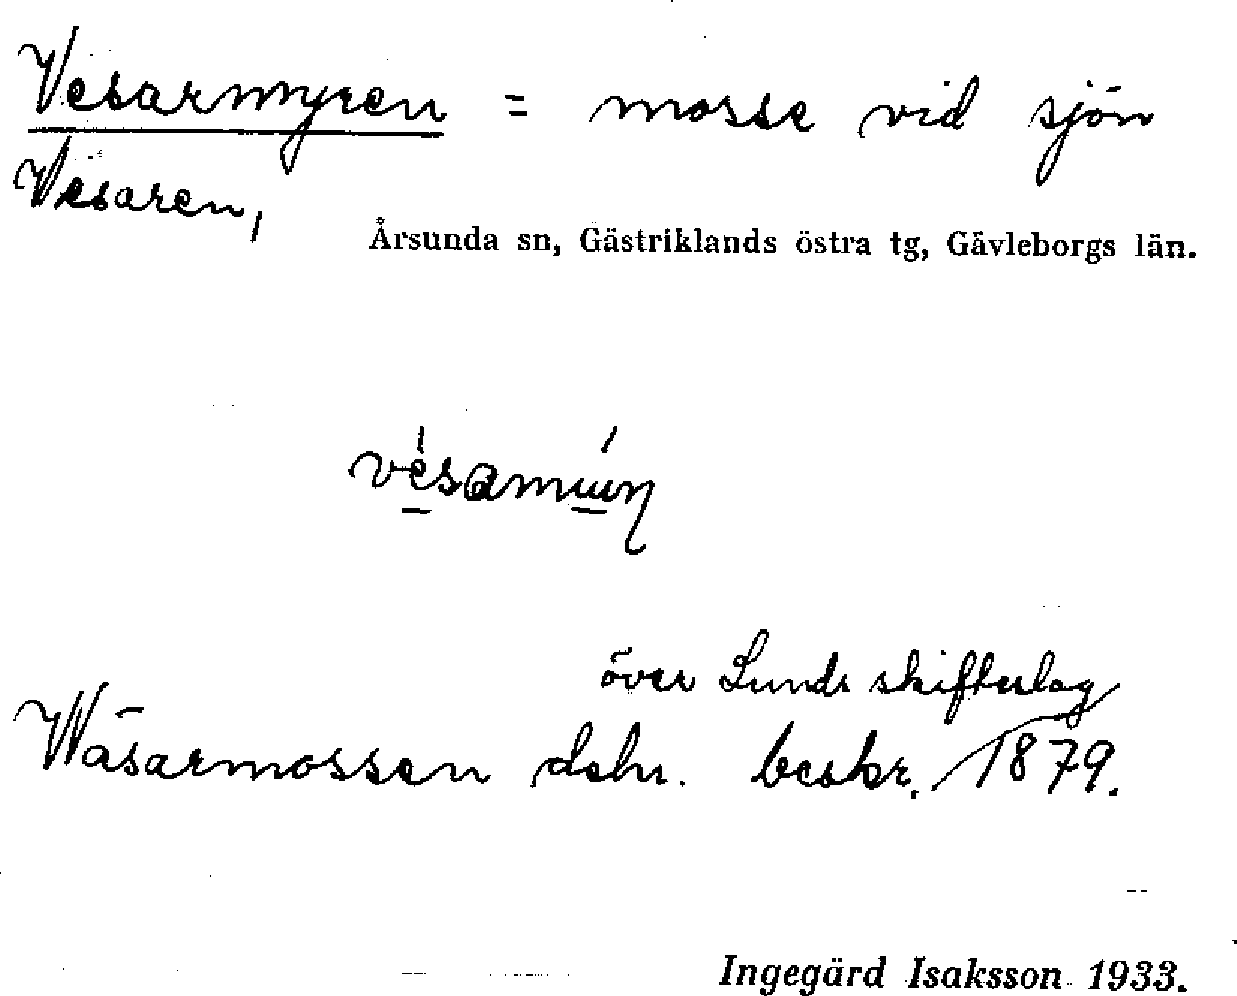 Vesarmyren = mosse vid sjön
Vesaren,
Årsunda sn, Gästriklands östra tg, Gävleborgs län.
över Lunds skifteslag
Wäsarmossen dshr. beskr. 1879.
Ingegärd Isaksson 1933.